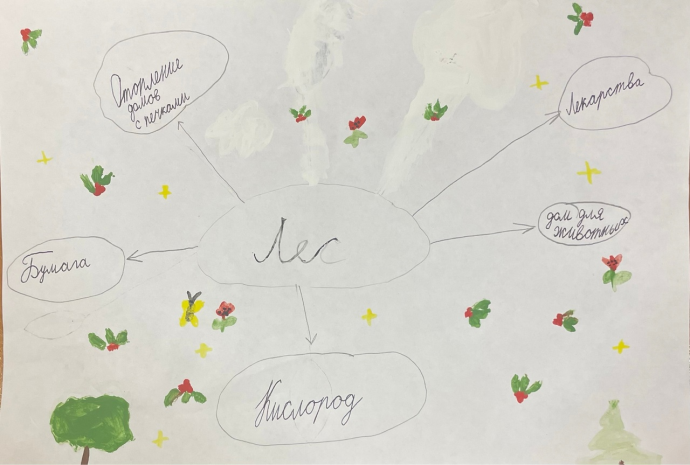 Отопление
домов
с печками
Лекарства
дом для
животных
Лес
Бумага
Кислород